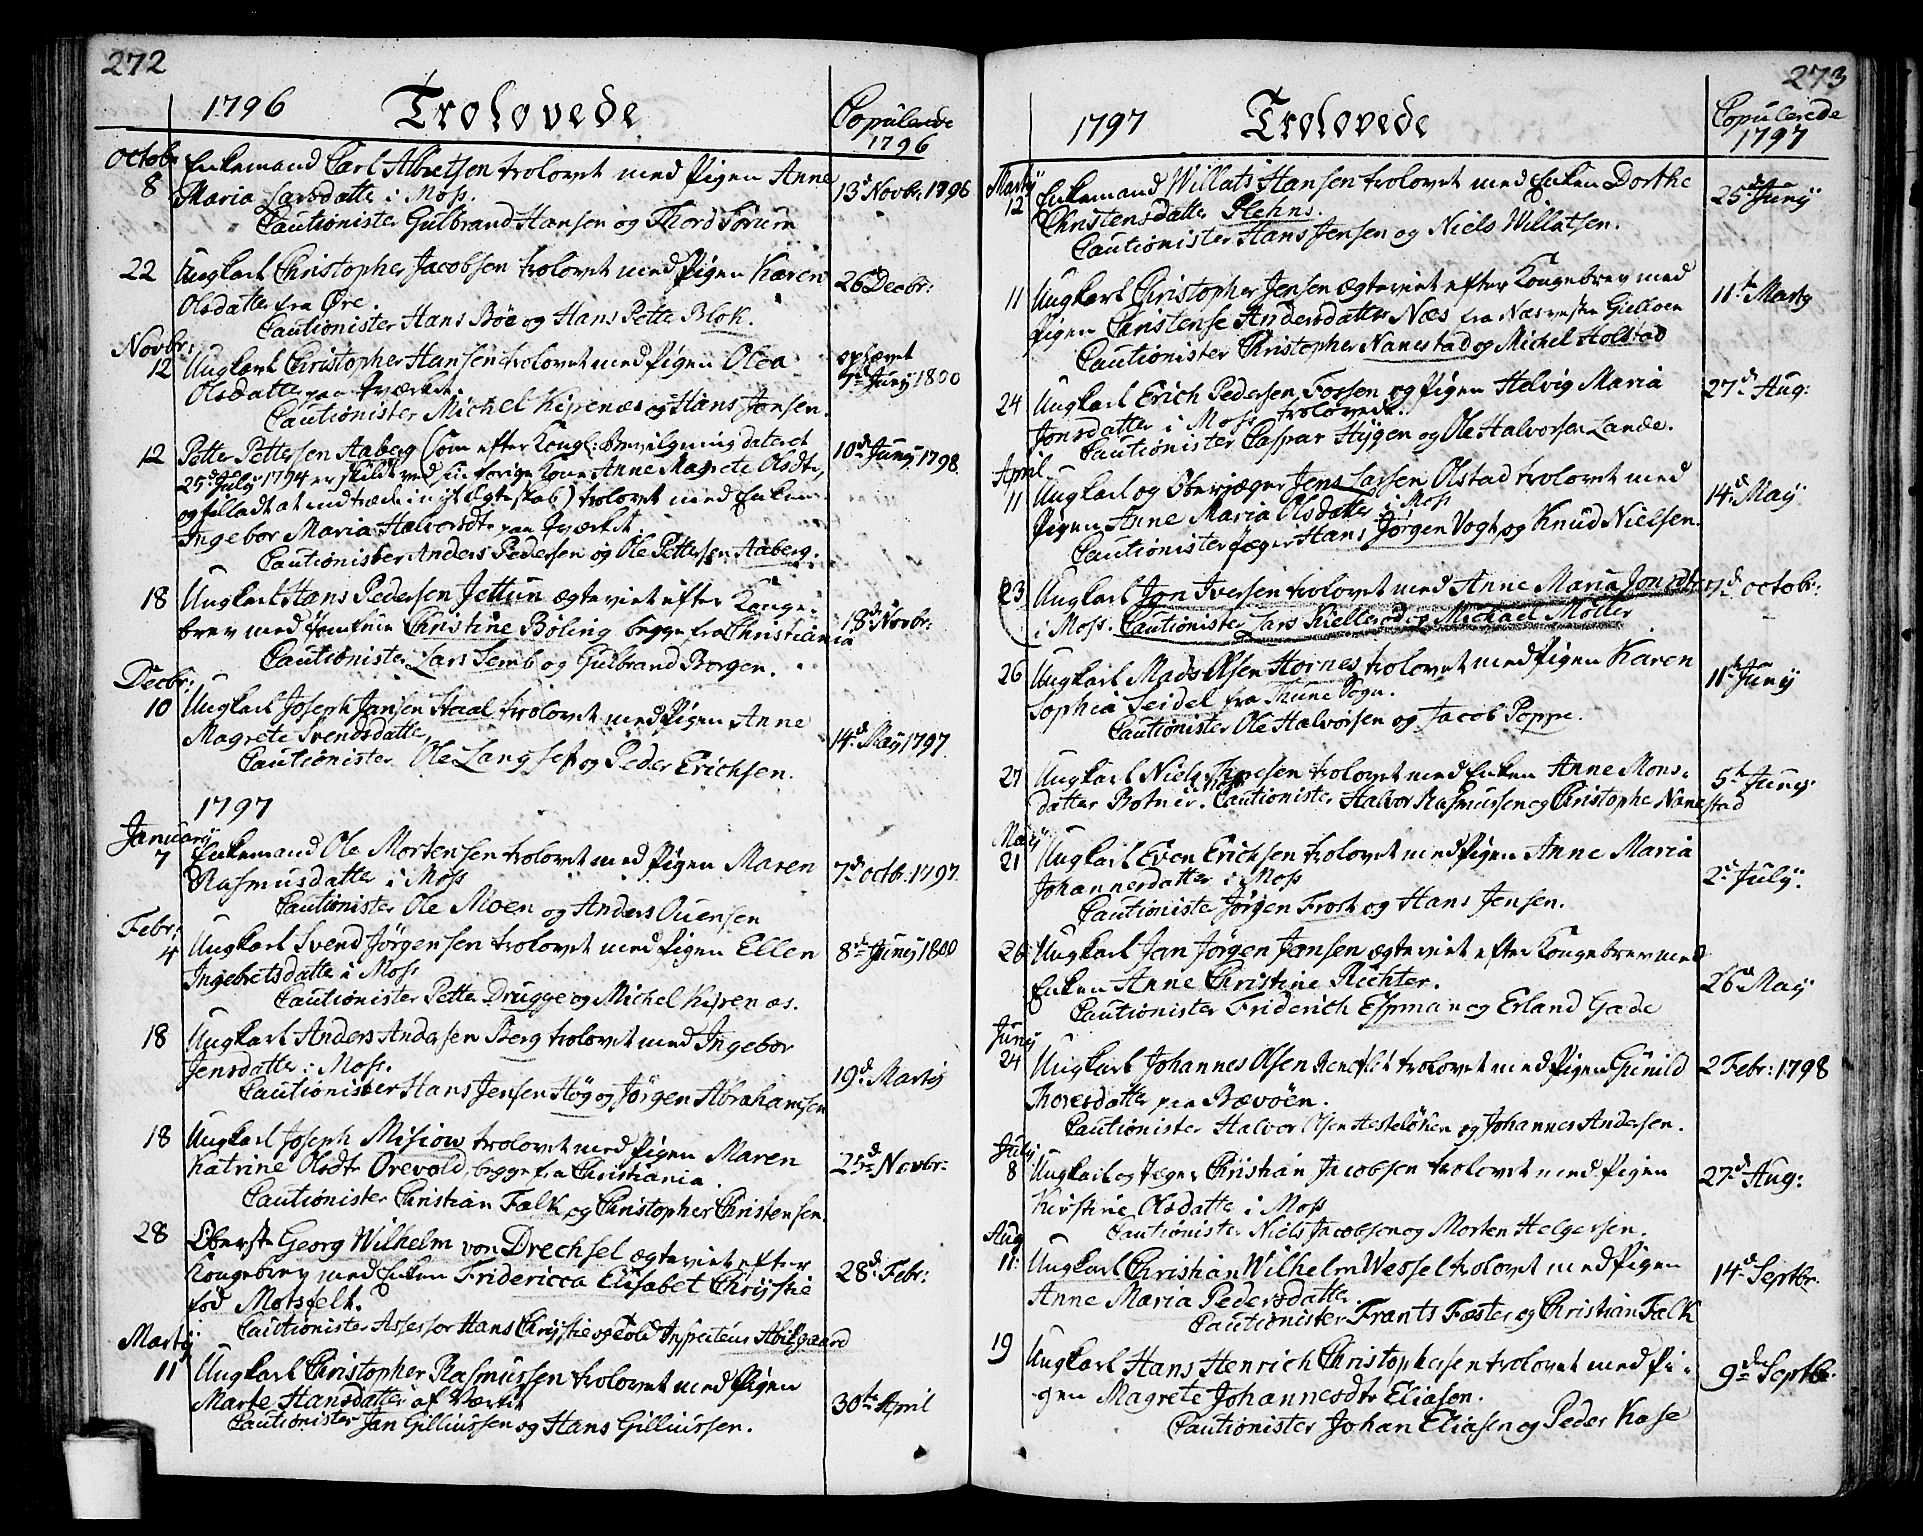 272
1796 Trolovede Copulerede
1796
Octobr
8 Enkemand Carl Albretsen trolovet med Pigen Anne
Maria Larsdatter i Moss. 13d Novbr. 1796
Cautionister Gulbrand Hansen og Thord Sörum
22 Ungkarl Christopher Jacobsen trolovet med Pigen Karen
Olsdatter fra Öre. 26 Decbr:
Cautionister Hans Böe og Hans Petter Blok.
Novbr:
12 Ungkarl Christopher Hansen trolovet med Pigen Olea
Olsdatter paa Værket. ophævet 7d Junij 1800
Cautionister Michel Kirenæs og Hans Jansen.
12 Petter Pettersen Aaberg (som efter Kongl: Bevilgning dateret 10d Junij 1798
25d July 1794 er skildt ved sin forrige Kone Anne Magrete Olsdtr,
og tilladt at indtræde i nyt Egteskab) trolovet med Enken
Ingebor Maria Halvorsdtr paa Værket.
Cautionister Anders Pedersen og Ole Pettersen Aaberg.
18 Ungkarl Hans Pedersen Jettun ægteviet efter Konge-
brev med Jomfrue Christine Böling begge fra Christiania 18d Novbr:
Cautionister Lars Semb og Gulbrand Borgen.
Decbr:
10 Ungkarl Joseph Jansen Staal trolovet med Pigen Anne
Magrete Svendsdatter, 14d May 1797
Cautionister Ole Langset og Peder Erichsen.
1797
Januarij
7 Enkemand Ole Mortensen trolovet med Pigen Maren
Rasmusdatter i Moss 7d octbr. 1797
Cautionister Ole Moen og Anders Ouensen
Febr:
4 Ungkarl Svend Jörgensen trolovet med Pigen Ellen 8de Junij 1800
Ingebretsdatter i Moss
Cautionister Petter Drugge og Michel Kirenæs.
18 Ungkarl Anders Andersen Berg trolovet med Ingebor
Jensdatter i Moss. 19d Martij
Cautionister Hans Jensen Hög og Jörgen Abrahamsen
18 Ungkarl Joseph Misiow trolovet med Pigen Maren
Katrine Olsdtr Orevold, begge fra Christiania. 25d Novbr:
Cautionister Christian Falk og Christopher Christensen.
28 Oberste Georg Wilhelm von Drechsel ægteviet efter
Kongebrev med Enken Fridericca Elisabet Chrystie 28d Febr:
föd Motsfelt.
Cautionister Assessor Hans Chrystie og Told Inspecteur Abilgaard
Martij
11 Ungkarl Christopher Rasmussen trolovet med Pigen
Marte Hansdatter af Værket 30te April
Cautionister Jan Gilliussen og Hans Gilliussen.
273
1797 Trolovede Copulerede
1797
Martij
12 Enkemand Willats Hansen trolovet med Enken Dorthe 25d Junij
Christensdatter Plehns.
Cautionister Hans Jensen og Niels Willatsen.
11 Ungkarl Christopher Jensen ægteviet efter Kongebrev med 11te Martij
Pigen Christense Andersdatter Næs fra Næs vestre Gielloen
Cautionister Christopher Nanestad og Michel Holstad
24 Ungkarl Erich Pedersen Fossen og Pigen Helvig Maria 27d Aug:
Jonsdatter i Moss trolovede.
Cautionister Caspar Hygen og Ole Halvorsen Lande.
April
11 Ungkarl og Oberjæger Jens Larsen Olstad trolovet med 14d May
Pigen Anne Maria Olsdatter i Moss
Cautionister Jæger Hans Jörgen Vogt og Knud Nielsen.
23 Ungkarl Jon Iversen trolovet med Anne Maria Jonsdtr 7d octobr:
i Moss. Cautionister Lars Kielleröd og Michael Möller
26 Ungkarl Mads Olsen Hornes trolovet med Pigen Karen 11te Junij
Sophia Seidel fra Thune Sogn.
Cautionister Ole Halvorsen og Jacob Poppe.
27 Ungkarl Niels Thoresen trolovet med Enken Anne Mons- 5te Junij
datter Botner. Cautionister Halvor Rasmussen og Christopher Nanestad
Maij
21 Ungkarl Even Erichsen trolovet med Pigen Anne Maria 2d July.
Johannesdatter i Moss
Cautionister Jörgen Frost og Hans Jensen.
26 Ungkarl Jan Jörgen Jansen ægteviet efter Kongebrev med
Enken Anne Christine Richter. 26d May
Cautionister Friderich Essman og Erland Gade
Junij
24 Ungkarl Johannes Olsen trolovet med Pigen Gunild 2 Febr: 1798
Thoresdatter paa Bævöen.
Cautionister Halvor Olsen Hestelöken og Johannes Andersen.
July
8 Ungkarl og Jæger Christian Jacobsen trolovet med Pigen 27d Aug:
Kirstine Olsdatter i Moss
Cautionister Niels Jacobsen og Morten Helgersen.
Aug
11. Ungkarl Christian Wilhelm Wessel trolovet med Pigen 14d Septbr.
Anne Maria Pedersdatter.
Cautionister Frants Fæster og Christian Falk
19 Ungkarl Hans Henrich Christophersen trolovet med Pi- 9de Septbr.
gen Magrete Johannesdtr Eliasen.
Cautionister Johan Eliasen og Peder Kase